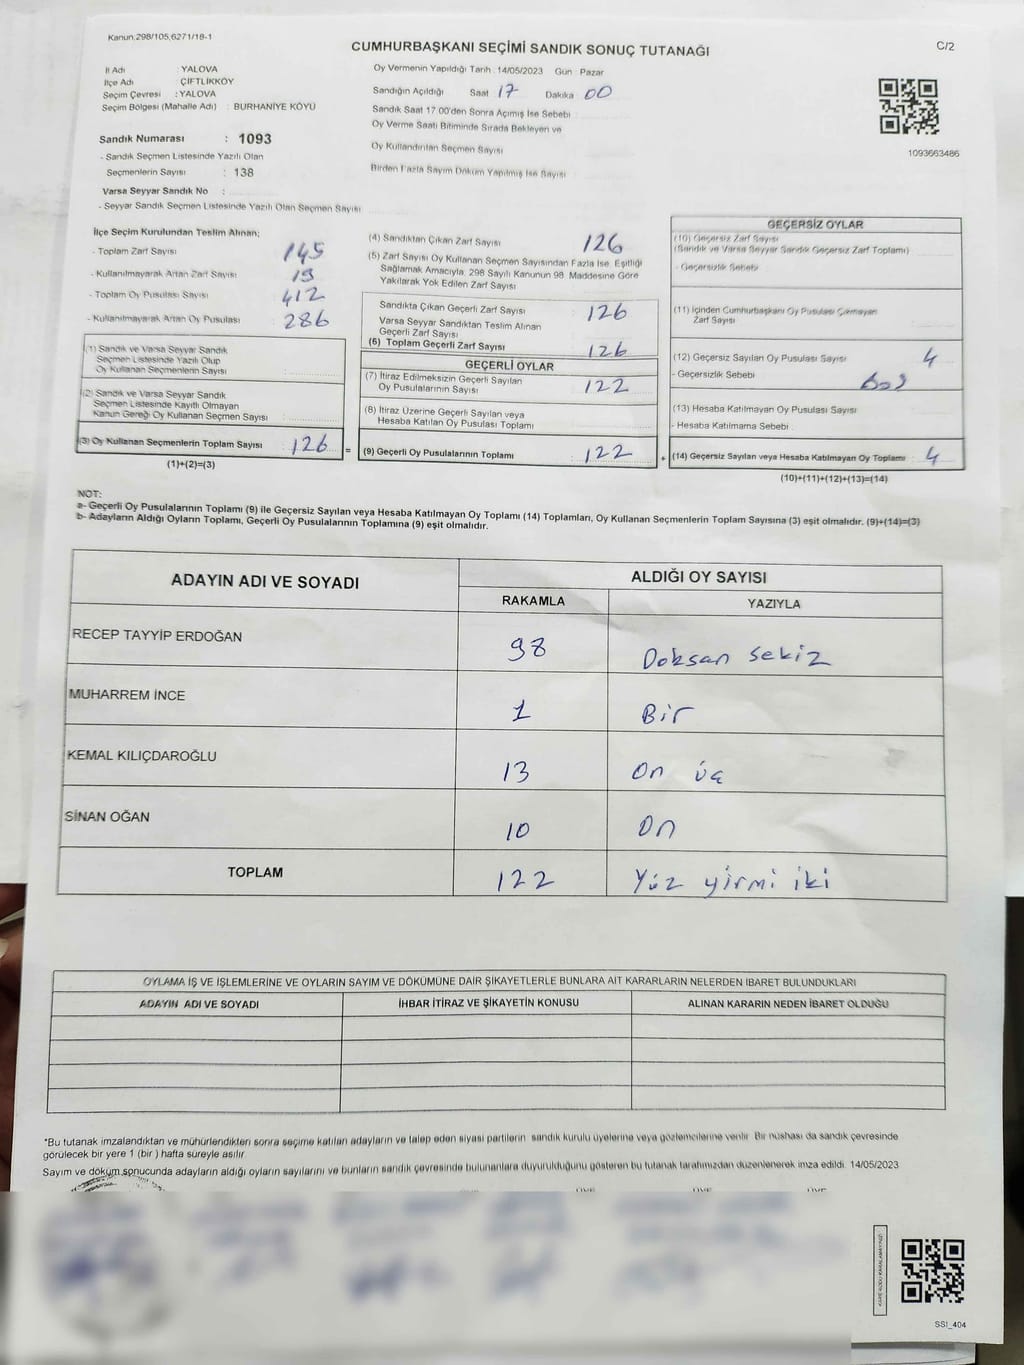 Kanun:298/105,6271/18-1
CUMHURBAŞKANI SEÇİMİ SANDIK SONUÇ TUTANAĞI
C/2
İl Adı : YALOVA
İlçe Adı : ÇİFTLİKKÖY
Seçim Çevresi : YALOVA
Seçim Bölgesi (Mahalle Adı) : BURHANİYE KÖYÜ
Oy Vermenin Yapıldığı Tarih :14/05/2023 Gün : Pazar
Sandığın Açıldığı Saat 17 Dakika 00
Sandık Saat 17:00'den Sonra Açılmış İse Sebebi :
Oy Verme Saati Bitiminde Sırada Bekleyen ve
Oy Kullandırılan Seçmen Sayısı
Birden Fazla Sayım Döküm Yapılmış İse Sayısı
1093663486
Sandık Numarası : 1093
- Sandık Seçmen Listesinde Yazılı Olan
Seçmenlerin Sayısı : 138
Varsa Seyyar Sandık No :
- Seyyar Sandık Seçmen Listesinde Yazılı Olan Seçmen Sayısı
İlçe Seçim Kurulundan Teslim Alınan;
- Toplam Zarf Sayısı 145
- Kullanılmayarak Artan Zarf Sayısı 19
- Toplam Oy Pusulası Sayısı 412
- Kullanılmayarak Artan Oy Pusulası 286
(1) Sandık ve Varsa Seyyar Sandık
Seçmen Listesinde Yazılı Olup
Oy Kullanan Seçmenlerin Sayısı
(2) Sandık ve Varsa Seyyar Sandık
Seçmen Listesinde Kayıtlı Olmayan
Kanun Gereği Oy Kullanan Seçmen Sayısı :
(3) Oy Kullanan Seçmenlerin Toplam Sayısı 126
(1)+(2)=(3)
(4) Sandıktan Çıkan Zarf Sayısı 126
(5) Zarf Sayısı Oy Kullanan Seçmen Sayısından Fazla İse, Eşitliği
Sağlamak Amacıyla, 298 Sayılı Kanunun 98. Maddesine Göre
Yakılarak Yok Edilen Zarf Sayısı
Sandıkta Çıkan Geçerli Zarf Sayısı 126
Varsa Seyyar Sandıktan Teslim Alınan
Geçerli Zarf Sayısı
(6) Toplam Geçerli Zarf Sayısı 126
GEÇERLİ OYLAR
(7) İtiraz Edilmeksizin Geçerli Sayılan
Oy Pusulalarının Sayısı 122
(8) İtiraz Üzerine Geçerli Sayılan veya
Hesaba Katılan Oy Pusulası Toplamı
= (9) Geçerli Oy Pusulalarının Toplamı 122
GEÇERSİZ OYLAR
(10) Geçersiz Zarf Sayısı
(Sandık ve Varsa Seyyar Sandık Geçersiz Zarf Toplamı)
- Geçersizlik Sebebi
(11) İçinden Cumhurbaşkanı Oy Pusulası Çıkmayan
Zarf Sayısı
(12) Geçersiz Sayılan Oy Pusulası Sayısı 4
- Geçersizlik Sebebi
(13) Hesaba Katılmayan Oy Pusulası Sayısı
- Hesaba Katılmama Sebebi
+ (14) Geçersiz Sayılan veya Hesaba Katılmayan Oy Toplamı 4
(10)+(11)+(12)+(13)=(14)
NOT:
a- Geçerli Oy Pusulalarının Toplamı (9) ile Geçersiz Sayılan veya Hesaba Katılmayan Oy Toplamı (14) Toplamları, Oy Kullanan Seçmenlerin Toplam Sayısına (3) eşit olmalıdır. (9)+(14)=(3)
b- Adayların Aldığı Oyların Toplamı, Geçerli Oy Pusulalarının Toplamına (9) eşit olmalıdır.
ADAYIN ADI VE SOYADI
ALDIĞI OY SAYISI
RAKAMLA YAZIYLA
RECEP TAYYİP ERDOĞAN 98 Doksan sekiz
MUHARREM İNCE 1 Bir
KEMAL KILIÇDAROĞLU 13 On üç
SİNAN OĞAN 10 On
TOPLAM 122 Yüz yirmi iki
OYLAMA İŞ VE İŞLEMLERİNE VE OYLARIN SAYIM VE DÖKÜMÜNE DAİR ŞİKAYETLERLE BUNLARA AİT KARARLARIN NELERDEN İBARET BULUNDUKLARI
ADAYIN ADI VE SOYADI İHBAR İTİRAZ VE ŞİKAYETİN KONUSU ALINAN KARARIN NEDEN İBARET OLDUĞU
*Bu tutanak imzalandıktan ve mühürlendikten sonra seçime katılan adayların ve talep eden siyasi partilerin sandık kurulu üyelerine veya gözlemcilerine verilir. Bir nüshası da sandık çevresinde
görülecek bir yere 1 (bir ) hafta süreyle asılır.
Sayım ve döküm sonucunda adayların aldığı oyların sayılarını ve bunların sandık çevresinde bulunanlara duyurulduğunu gösteren bu tutanak tarafımızdan düzenlenerek imza edildi. 14/05/2023
SSİ_404